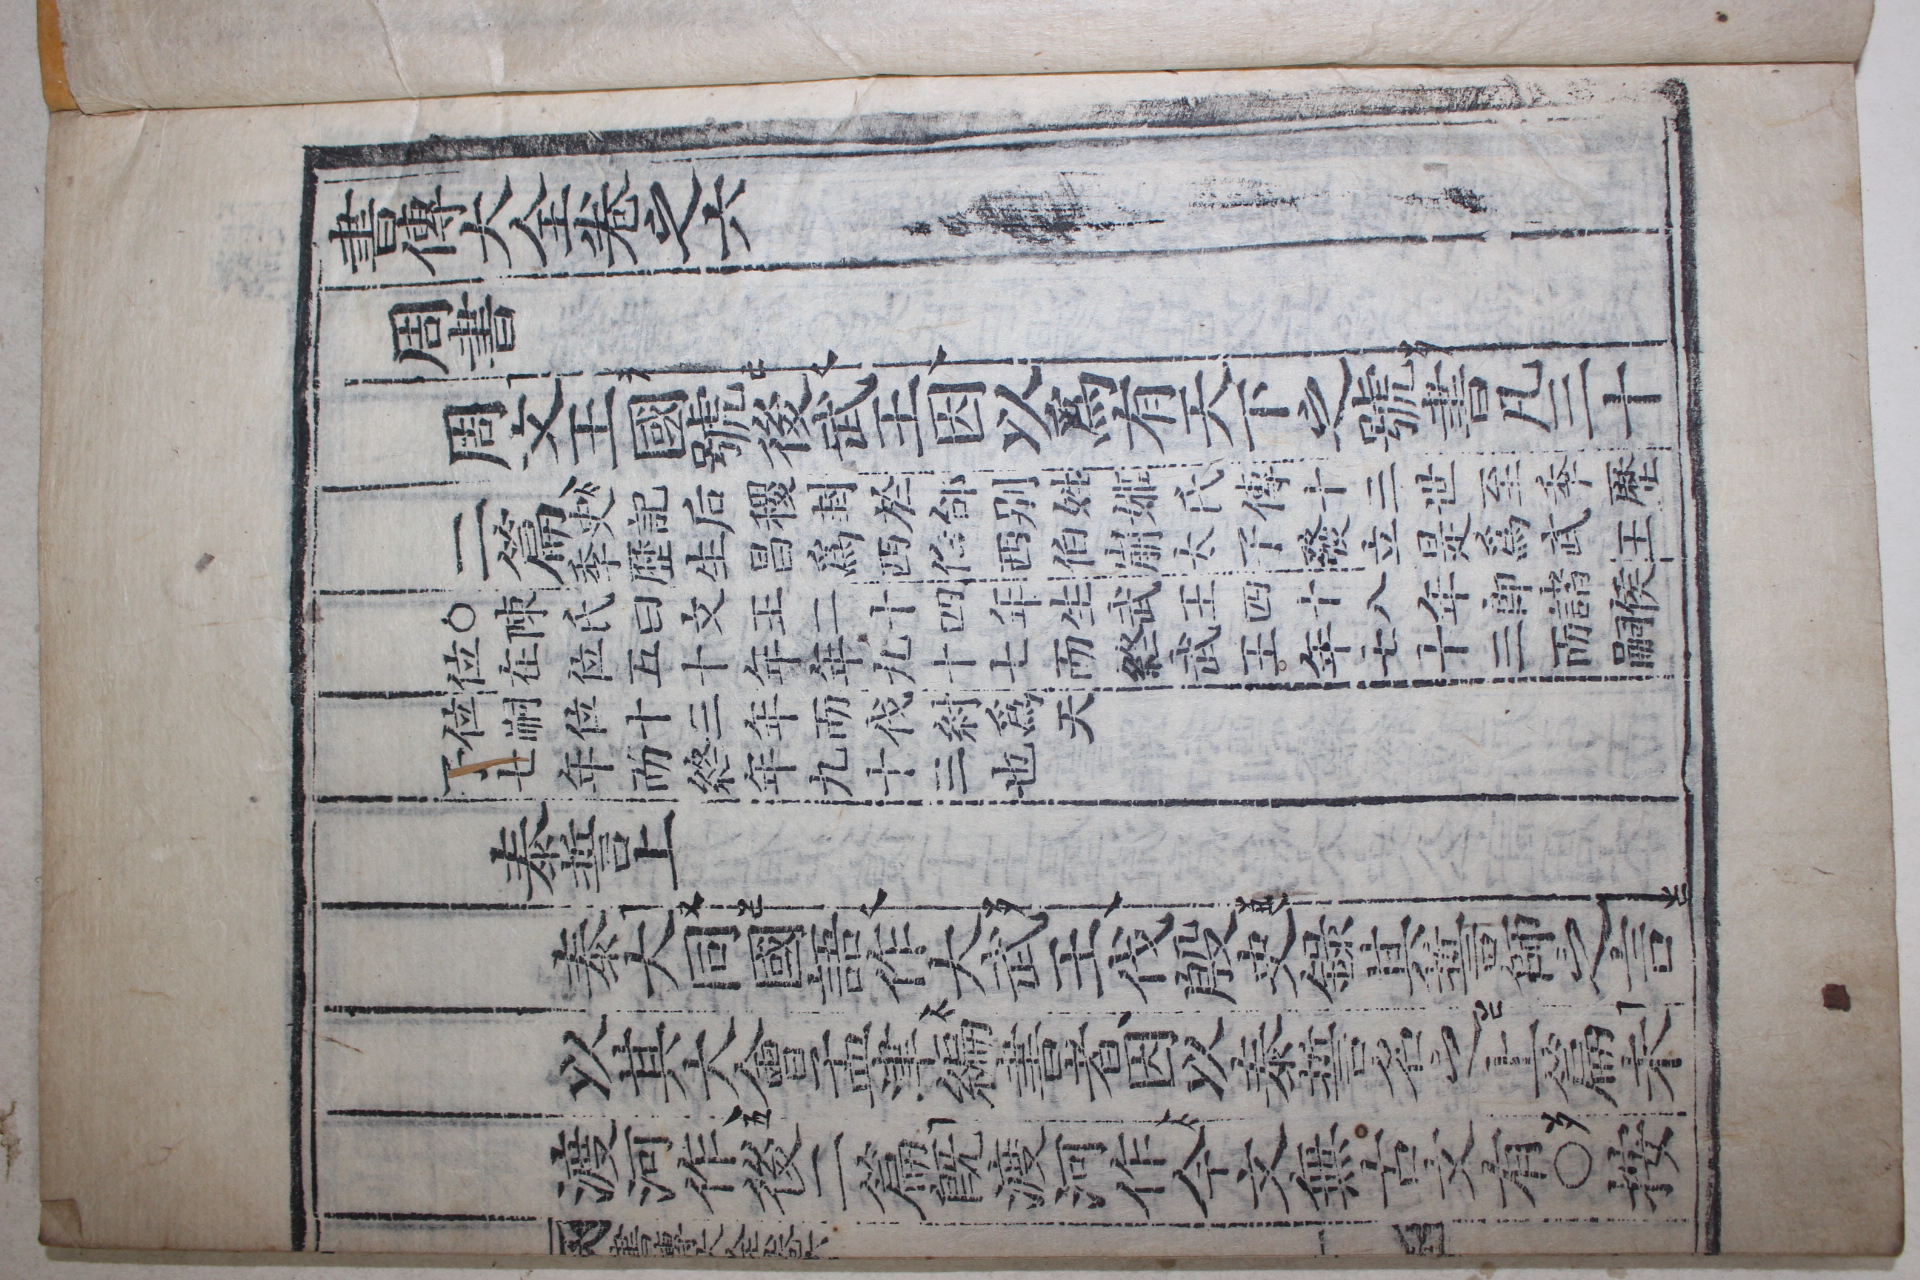 書傳大全卷之六
周書
周文王國號後武王因以爲有天下之號書凡三十
二篇
史記后稷封於邰別姓姬氏傳十三世至季歷
季歷生昌爲西伯西伯崩太子發立是爲武王
○陳氏曰文王二十四年生武王四十八年卽諸侯
位在位五十年年九十七而終武王年七十三而嗣
位嗣位十三年而伐紂爲天
子七年而終年九十三也
泰誓上
泰大同國語作大武王伐殷史錄其誓師之言
以其大會孟津編書者因以泰誓名之上篇未
渡河作後二篇旣渡河作今文無古文有○按
書傳大全卷六 一